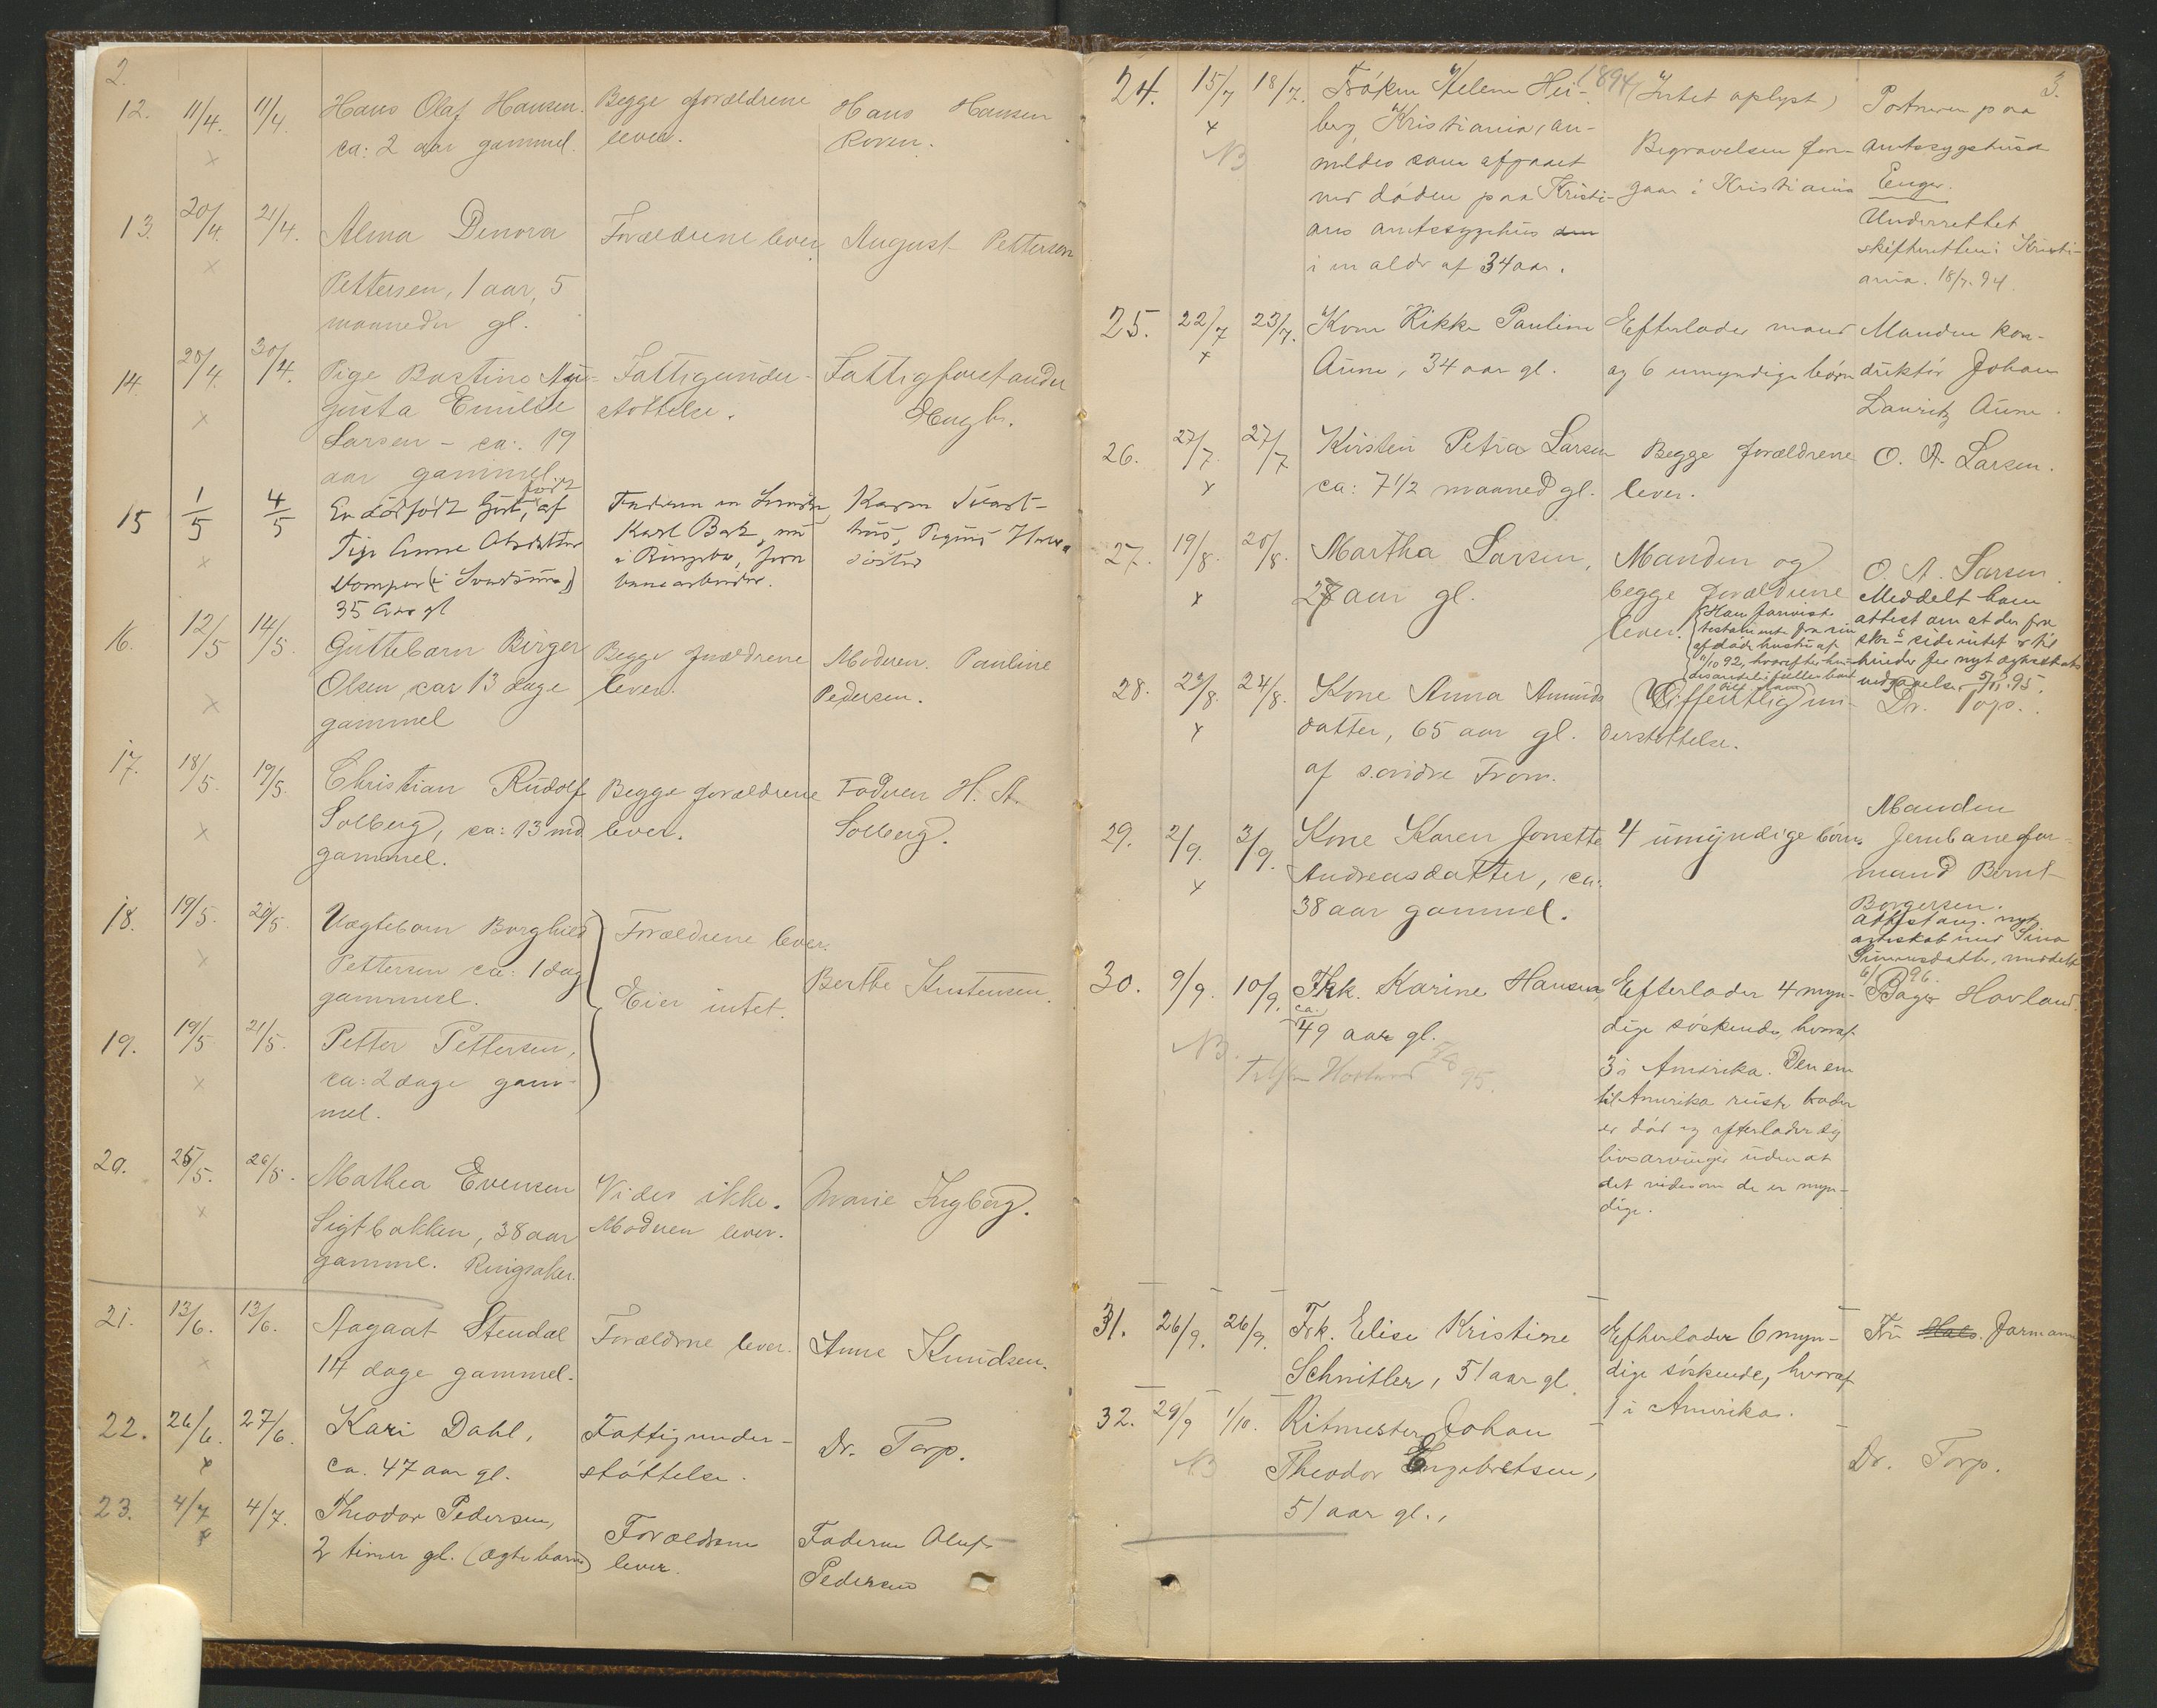 2.
12. 11/4. 11/4. Hans Olaf Hansen. Begge forældrene Hans Hansen
x ca: 2 aar gammel. lever. Roven.
13. 20/4. 21/4. Alma Denora Forældrene lever, August Pettersen
x Pettersen, 1 aar, 5
maaneder gl.
14. 28/4. 30/4. Pige Bastine Au- Fattigunder- Fattigforstander
x gusta Emilie støttelse.
Larsen - ca: 19
aar gammel.
15 1/5 4/5 En dødfødt Gut, født af Faderen en
x Pige Anne Karl nu
i Ringebu, jern
35 Aar gl banearbeider.
16. 12/5 14/5. Guttebarn Birger Begge forældrene Moderen. Pauline
x Olsen, car 13 dage lever. Pedersen.
gammel
17. 18/5. 19/5. Christian Rudolf Begge forældrene Faderen H. A.
x Solberg, ca: 13 md lever. Solberg.
gammel.
18. 19/5. 20/5. Uægtebarn Borghild Forældrene lever.
x Pettersen ca: 1 dag Eier intet. Berthe
gammel.
19. 19/5 21/5. Petter Pettersen,
x ca: 2 dage gam-
mel.
20. 25/5. 26/5. Mathea Evensen Vides ikke. Marie Ingberg.
x Sigtbakken, 38 aar Moderen lever.
gamml. Ringsaker.
21. 13/6. 13/6. Aagaat Stendal Forældrne lever. Anne Knudsen.
x 14 dage gammel.
22. 26/6. 27/6. Kari Dahl, Fattigunder- Dr. Torp.
x ca. 47 aar gl. støttelse.
23. 4/7 4/7. Theodor Pedersen, Forældrene Faderen Oluf
x 2 timer gl. (ægte barn) lever. Pedersen
1894 3.
24. 15/7 18/7. Frøken Helene Hei- (Intet oplyst) Portneren paa
x berg, Kristiania, an- Begravelsen fore- amtssygehuset
NB meldes som afgaaet gaar i Kristiania Enger.
ved døden paa Kristi- Underrettet
ans amtssygehus skifteretten i Kristi-
i en alder af 34 aar. ania. 18/7. 94
25. 22/7 23/7. Kone Rikke Pauline Efterlader mand Manden kon-
x Aune, 34 aar gl. og 6 umyndige børn duktør Johan
Lauritz Aune.
26. 27/7. 27/7 Kirsten Petra Larsen Begge forældrene O. A. Larsen.
x ca: 7 1/2 maaned gl. lever.
27. 19/8. 20/8. Martha Larsen, Manden og O. A. Larsen.
x 28 aar gl. begge forældrene Meddelt ham
lever. Han foreviste attest om at der fra
testamente fra sin skr s side intet er til
afdøde hustru af hinder for nyt ægteskabs
/10 92, hvorefter hen- indgaaelse 5/11 95.
des andel i fællesboet
tilf. ham
28. 23/8. 24/8. Kone Anna Amunds Offentlig un- Dr. Torp.
x datter, 65 aar gl. derstøttelse.
af søndre From.
29. 2/9. 3/9. Kone Karen Jonette 4 umyndige børn. Manden
x Andreasdatter, ca: Jernbanefor-
38 aar gammel. mand Bernt
Borgersen.
Attest ang. nyt
ægteskab med Sina
Simensdatter, meddelt
6/ 96.
30. 9/9. 10/9. Frk. Karine Hansen Efterlader 4 myn- Bager Hovland.
NB. ca. 49 aar gl. dige søskende, hvoraf
Hovland 5/8 95. 3 i Amerika. Den ene
til Amerika reiste broder
er død og efterlader sig
livsarvinger uden at
det vides om de er myn-
dige.
31. 26/9. 26/9. Frk. Elise Kristine Efterlader 6 myn- Fru Jarmann
Schnitler, 51 aar gl. dige søskende, hvoraf
1 i Amerika.
32. 29/9 1/10. Ritmester Johan
NB Theodor Engebretsen, Dr. Torp.
51 aar gl.,